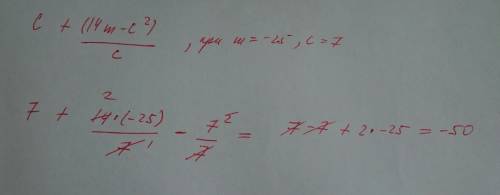 c + (14m-c²)/c , при m = -25, c = 7
7 + 14·(-25)/7 - 7²/7 = 7-7 + 2·-25 = -50